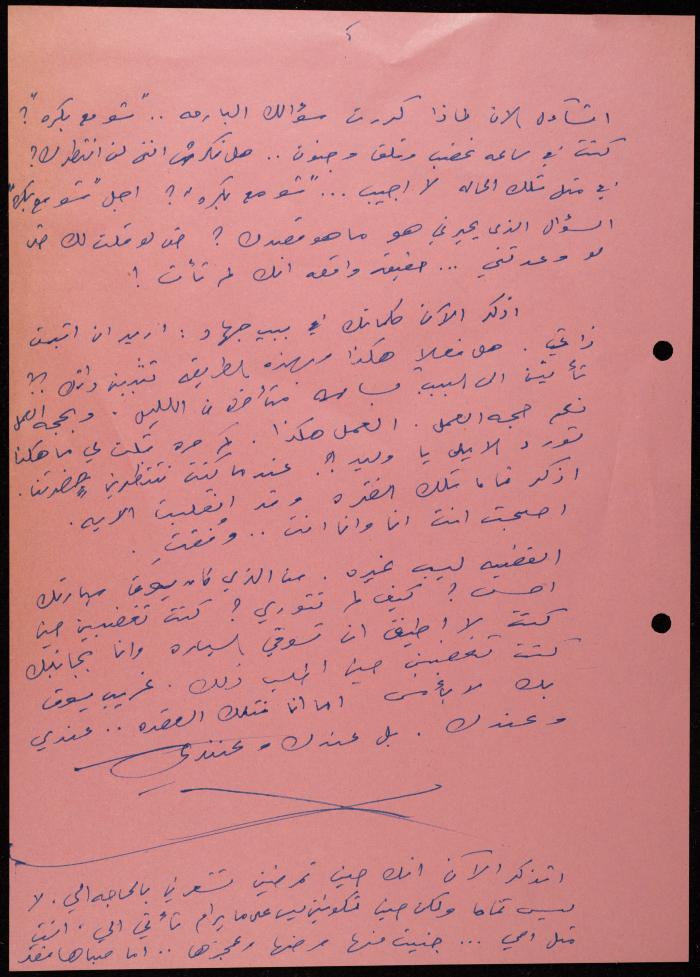 اتساءل الان لماذا كررت سؤالك البارحه .. "شو مع بكره"؟
كنت في ساعه غضب وقلق وجنون .. هل تذكر انني لن انتظرك؟
في مثل تلك الحاله لا اجيب ... "شو مع بكره"؟ اجل "شو مع بكره"
السؤال الذي يحيرني هو ما هو قصدك ؟ حتى لو قلت لك حتى
لو وعدتني ... حقيقة واقعه انك لم تأت !
اذكر الآن كلماتك في بيت جهاد : اريد ان اثبت
ذاتي . هل فعلا هكذا وبهذه الطريقه تثبتين ذاتك ؟!
تأتين الى البيت بساعه متأخره من الليل . وبحجه العمل
نعم حجه العمل . العمل هكذا . كم مره قلت لي ما هكذا
تورد الابل يا وليد ؟! عندما كنت تنتظرين حضرتنا .
اذكر تماما تلك الفتره وقد انقلبت الايه .
اصبحت انت انا وانا انت .. وُفقتِ .
القضيه ليست غيره . من الذي كان يسوق سيارتك
امس ؟ كيف لم تثوري ؟ كنت تغضبين حين
كنت لا اطيق ان تسوقي السياره وانا بجانبك
كنت تغضبين حين اطلب ذلك . غريب يسوق
بك لا بأس اما انا فتلك العقده .. عندي
وعندك . بل عندك وعندي
اتذكر الآن انك حين تمرضين تشعرني بالحاجه الي . لا
ليس تماما ولكن حين تكونين ليس على ما يرام تأتي الي . انت
مثل امي ... جنيت منها مرضها وعجزها .. اما صباها فقد